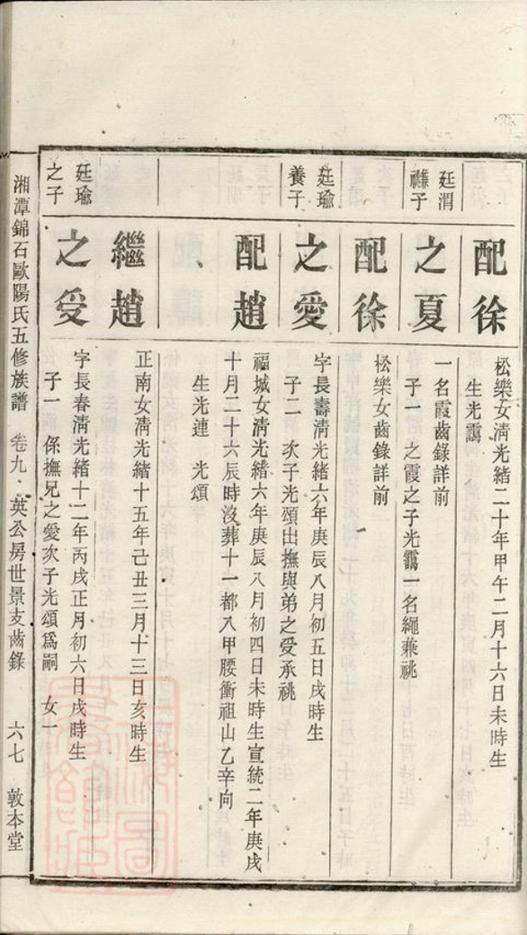 配徐
松樂女清光緒二十年甲午二月十六日未時生
生光靄
廷渭
祧子
之夏
一名霞齒錄詳前
子一 之霞之子光靄一名繩兼祧
配徐
松樂女齒錄詳前
廷瑜
養子
之愛
字長壽清光緒六年庚辰八月初五日戌時生
子二 次子光頌出撫與弟之受承祧
配趙
福城女清光緒六年庚辰八月初四日未時生宣統二年庚戌
十月二十六辰時沒葬十一都八甲腰衝祖山乙辛向
生光連 光頌
繼趙
正南女清光緒十五年己丑三月十三日亥時生
廷瑜
之子
之受
字長春清光緒十二年丙戌正月初六日戌時生
子一 係撫兄之愛次子光頌爲嗣 女一
湘潭錦石歐陽氏五修族譜 卷九 英公房世景支齒錄 六七 敦本堂